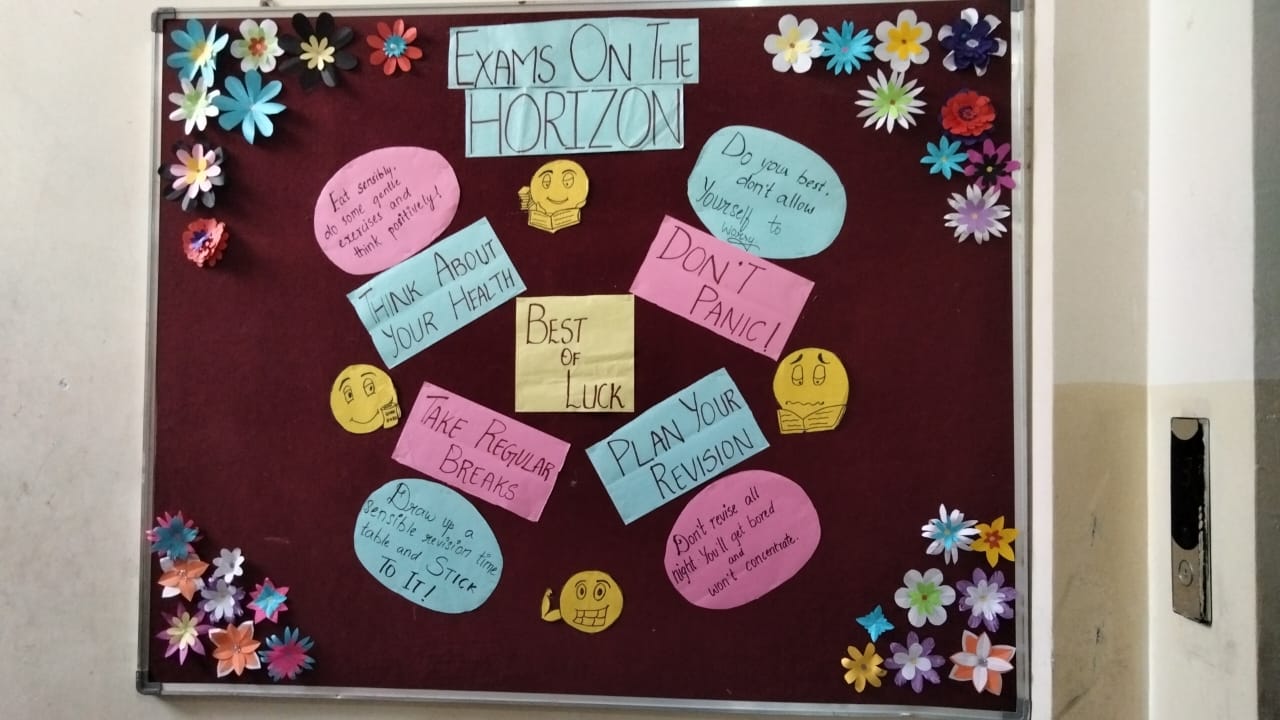 EXAMS ON THE
HORIZON
Eat sensibly.
do some gentle
exercises and
think positively!
THINK ABOUT
YOUR HEALTH
Do your best.
don't allow
yourself to
worry
DON'T
PANIC!
BEST
OF
LUCK
TAKE REGULAR
BREAKS
Draw up a
sensible revision time
table and STICK
TO IT!
PLAN YOUR
REVISION
Don't revise all
night You'll get bored
and
won't concentrate.